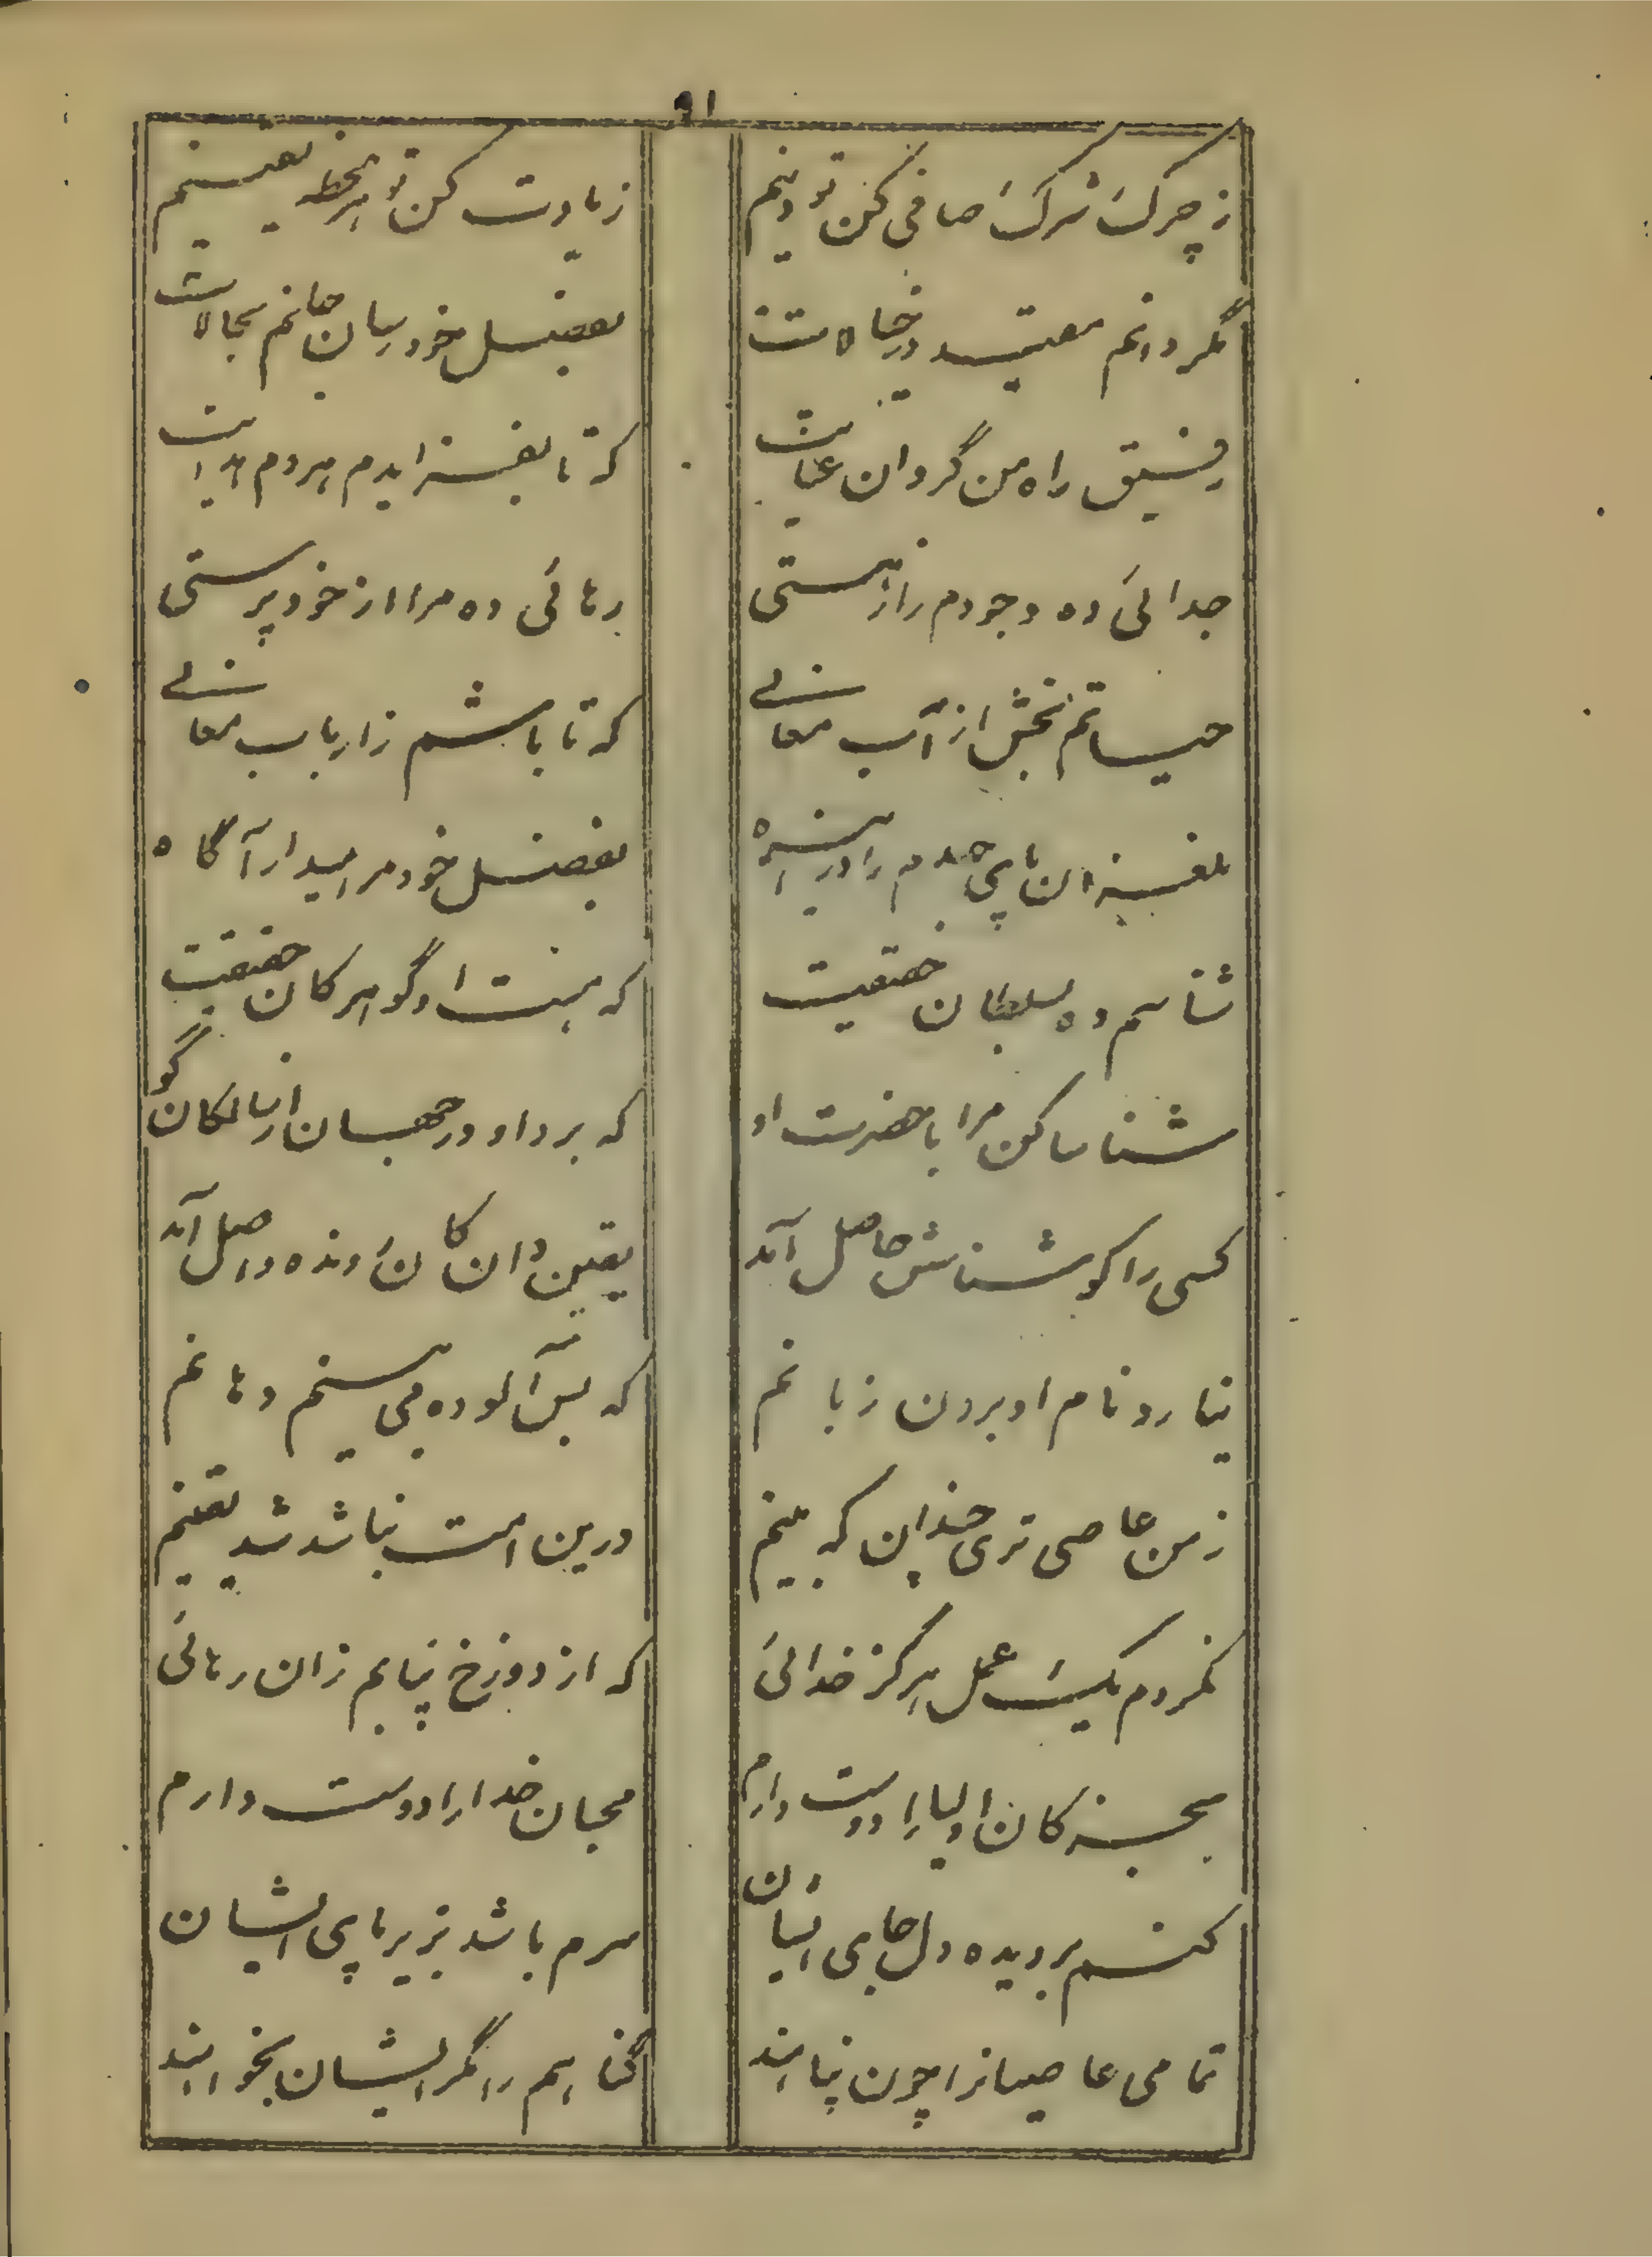 ۹۱
ز چرک شرک صافی کن تو دینم
زیادت کن تو هر لحظه یقینم
مگردانم مقید در خیالات
بفضل خود رسان جانم بحالات
رفیق راه من گردان عنایت
که تا بفزایدم هر دم هدایت
جدائی ده وجودم را ز هستی
رهائی ده مرا از خود پرستی
حیاتم بخش از آب معانی
که تا باشم ز ارباب معانی
ملغزان پای جدم را درین راه
بفضل خود مرا میدار آگاه
شناسم ده بسلطان حقیقت
که هست او گوهر کان حقیقت
شناسا کن مرا با حضرت او
که برد او در جهان از سالکان گو
کسی را کو شناسش حاصل آمد
یقین دان کان رونده واصل آمد
نیارد نام او بردن زبانم
که بس آلوده می بینم دهانم
ز من عاصی تری چندان که بینم
درین امت نباشد شد یقینم
نکردم یک عمل هرگز خدائی
که از دوزخ نیابم زان رهائی
بجز کان اولیا را دوست دارم
محبان خدا را دوست دارم
کنم بر دیده و دل جای ایشان
سرم باشد بزیر پای ایشان
تمامی عاصیانرا چون پناهند
گناهم را مگر ایشان بخواهند